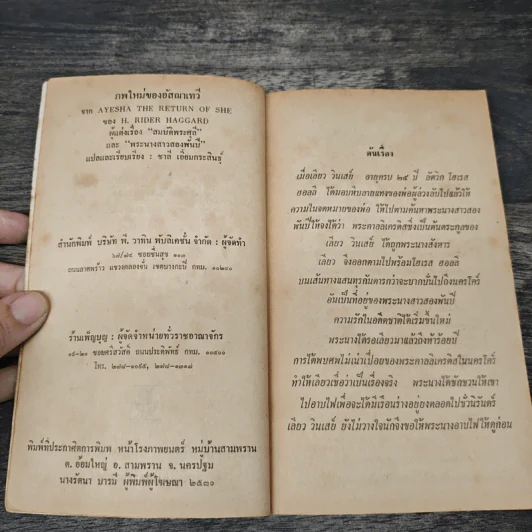 ภพใหม่ของอัสณาเทวี
จาก AYESHA THE RETURN OF SHE
ของ H. RIDER HAGGARD
ผู้แต่งเรื่อง "สมบัติพระศุลี"
และ "พระนางสาวสองพันปี"
แปลและเรียบเรียง : ชาลี เอี่ยมกระสินธุ์
สำนักพิมพ์ บริษัท พี. วาทิน พับลิเคชั่น จำกัด : ผู้จัดทำ
๖/๗๔ ซอยชื่นสุข ๑๑๓
ถนนลาดพร้าว แขวงคลองจั่น เขตบางกะปิ กทม. ๑๐๒๔๐
ร้านเพ็ญบุญ : ผู้จัดจำหน่ายทั่วราชอาณาจักร
๑๘-๒๐ ซอยศรีสวัสดิ์ ถนนประดิพัทธ์ กทม. ๑๐๔๐๐
โทร.
พิมพ์ที่ประกาศิตการพิมพ์ หน้าโรงภาพยนตร์ หมู่บ้านสามพราน
ต. อ้อมใหญ่ อ. สามพราน จ. นครปฐม
นางรัตนา บารมี ผู้พิมพ์ผู้โฆษณา ๒๕๓๑
ต้นเรื่อง
เมื่อเลียว วินเสย์ อายุครบ ๒๕ ปี อัศวิก โฮเรส
ฮอลลี ได้มอบหีบลายแทงของพ่อผู้ล่วงลับไปแล้วให้
ความในจดหมายของพ่อ ให้ไปตามค้นหาพระนางสาวสอง
พันปีให้จงได้ว่า พระกาลลิเครติสซึ่งเป็นต้นตระกูลของ
เลียว วินเสย์ ได้ถูกพระนางสังหาร
เลียว จึงออกตามไปพร้อมโฮเรส ฮอลลี
บนเส้นทางแสนทุรกันดารกว่าจะบากบั่นไปถึงนครโคร์
อันเป็นที่อยู่ของพระนางสาวสองพันปี
ความรักในอดีตชาติได้เริ่มขึ้นใหม่
พระนางได้รอเลียวมาแล้วถึงห้าร้อยปี
การได้พบศพไม่เน่าเปื่อยของพระกาลลิเครติสในนครโคร์
ทำให้เลียวเชื่อว่าเป็นเรื่องจริง พระนางได้ชักชวนให้เขา
ไปอาบไฟเพื่อจะได้มีเรือนร่างอยู่ยงตลอดไปชั่วนิรันดร์
เลียว วินเสย์ ยังไม่วางใจนักจึงขอให้พระนางอาบไฟให้ดูก่อน